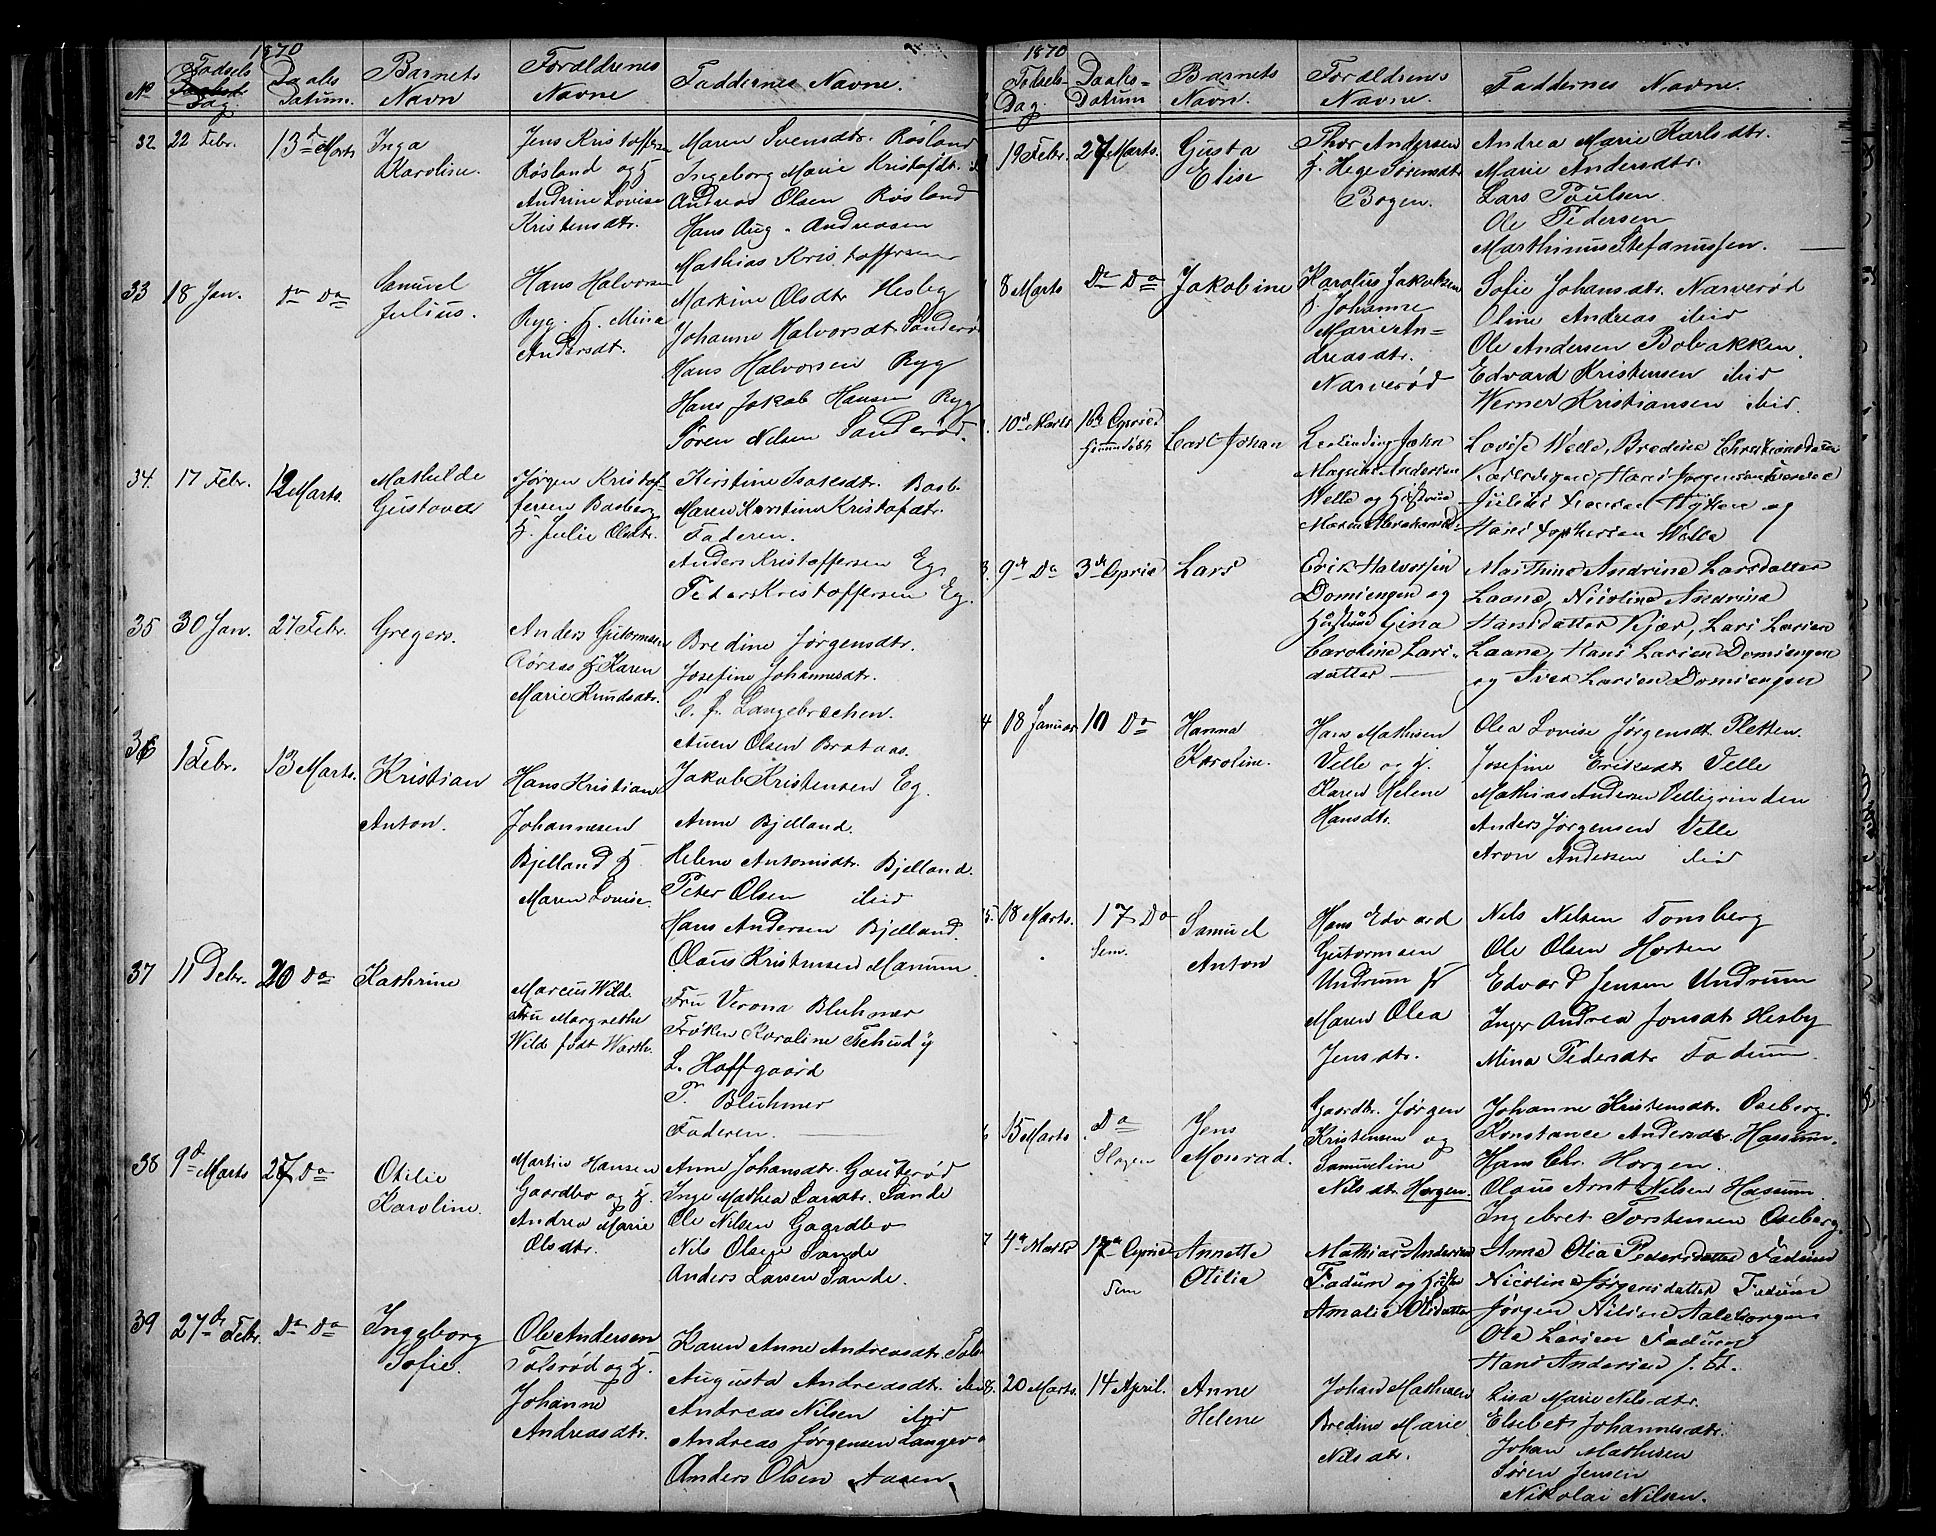 1870
No
Fødsels
Dag
Daabs
Datum.
Barnets
Navn
Forældrenes
Navne
Faddernes Navne.
32 22 Febr. 13d Marts
Inga
Karoline.
Jens Kristoffersen
Røsland og H.
Andrine Lovise
Kristensdtr.
Maren Svensdtr. Røsland
Ingeborg Marie Kristofdtr.
Andreas Olsen Røsland
Hans Aug. Andreasen
Mathias Kristoffersen
33 18 Jan. Do Do
Samuel
Julius.
Hans Halvorsen
Ryg. H. Mina
Andersdt.
Martine Olsdtr Hesby
Johanne Halvorsdtr Sanderød
Hans Halvorsen Ryg
Hans Jakob Hansen Ryg
Søren Nilsen Sanderød.
34. 17 Febr. 12 Marts.
Mathilde
Gustava
Jørgen Kristof-
fersen Basberg
H. Julie Olsdtr.
Kirstine Isaksdtr. Basb.
Maren Kirstine Kristofdtr.
Faderen.
Anders Kristoffersen Eg.
Peder Kristoffersen Eg.
35 30 Jan. 27 Febr.
Gregers.
Anders Gutormsen
Røraas H Karen
Marie Knudsdtr.
Bredine Jørgensdtr.
Josefine Johannesdtr.
C. F. Langebrechen.
Auen Olsen Brataas.
36 1 Febr. 13 Marts.
Kristian
Anton.
Hans Kristian
Johannesen
Bjelland H.
Maren Lovise.
Jakob Kristensen Eg.
Anne Bjelland.
Helene Antonisdtr. Bjelland.
Peter Olsen ibid
Hans Andersen Bjelland.
Olaus Kristensen Manum.
37 11 Debr. 20 Do
Kathrine
Marcus Wild
Fru Margrethe
Wild født Warth.
Fru Verona Bluhmer
Frøken Karoline Tschudy
L. Hoffgaard
T. Bluhmer
Faderen.
38 9d Marts 27 Do
Otilie
Karoline.
Martin Hansen
Gaardbo og H.
Andrea Marie
Olsdtr.
Anne Johansdtr. Gauterød
Inge Mathea Larsdtr. Sande
Ole Nilsen Gaardbo
Nils Olsen Sande
Anders Larsen Sande.
39 27de Febr. Do Do
Ingeborg
Sofie.
Ole Andersen
Tolsrød og H.
Johanne
Andreasdtr.
Karen Anne Andreasdtr. Tols.
Augusta Andreasdtr. ibid
Andreas Nilsen ibid
Andreas Jørgensen Langevo
Anders Olsen Aasen.
1870
Fødsels-
Dag.
Daabs-
Datum
Barnets
Navn.
Forældrenes
Navne.
Faddernes Navne.
19 Febr. 27 Marts.
Gusta
Elise
Thor Andersen
H. Hege Sørensdtr
Bogen.
Andrea Marie Karlsdtr.
Marie Andersdtr.
Lars Poulsen
Ole Pedersen
Marthinus Stefanussen.
8 Marts Do Do
Jakobine
Karolus Jakobsen
H Johanne
Marie An=
dreasdtr.
Narverød
Sofie Johansdtr. Narverød
Oline Andreas ibid
Ole Andersen Bobakken.
Edvard Kristensen ibid
Werner Kristiansen ibid.
10d Marts 10de April
Hjemmedøbt
Carl Johan
John
Andersen
Welle og Hustrue
Maren Abrahamsd=
Lovise Welle, Bredine Christiansdatter
Hans Jørgensen
og
Welle
3. 9de Do 3de April
Lars
Erik Halvorsen
Domiengen og
Hustrue Gina
Caroline Lars-
datter
Marthine Andrine Larsdatter
Laane, Nicoline Andrine
Hansdatter Kjær, Lars Larsen
Laane, Hans Larsen Domiengen
og Iver Larsen Domiengen
4 18 Januar 10 Do
Hanna
Karoline.
Hans Mathisen
Velle og H.
Karen Helene
Hansdtr.
Olea Lovise Jørgensdt Pletten.
Josefine Eriksdtr Velle
Mathias Andersen Velligrinden
Anders Jørgensen Velle
Aron Andersen ibid
5. 18 Marts. 17 Do
Sem.
Samuel
Anton
Hans Edvard
Gutormsen
Undrum H
Maren Olea
Jensdtr.
Nils Nilsen Tønsberg
Ole Olsen Horten
Edvard Jensen Undrum
Inger Andrea Jonsdt Hesby
Mina Pedersdtr Fadum.
6 15 Marts. Do
Slagen
Jens
Monrad.
Gaardbr. Jørgen
Kristensen og
Samueline
Nilsdtr. Horgen.
Johanne Kristensdtr. Oseberg.
Konstance Andersdtr. Hassum.
Hans Chr. Horgen.
Olaus Arnt Nilsen Hassum.
Ingebret Torstensen Oseberg.
7 4de Marts 17de April
Sem
Annette
Otilia
Mathias Andersen
Fadum og Hustr.
Amalie Olsdatter
Anne Olea Pedersdatter Fadum
Nicoline Jørgensdatter Fadum
Jørgen Nilsen Aaleborgen
Ole Larsen Fadum
Hans Andersen
8. 20 Marts. 14 April.
Anne
Helene
Johan Mathisen
Bredine Marie
Nilsdtr.
Lisa Marie Nilsdtr.
Elsebet Johannesdtr.
Johan Mathisen
Søren Jensen
Nikolai Nilsen.